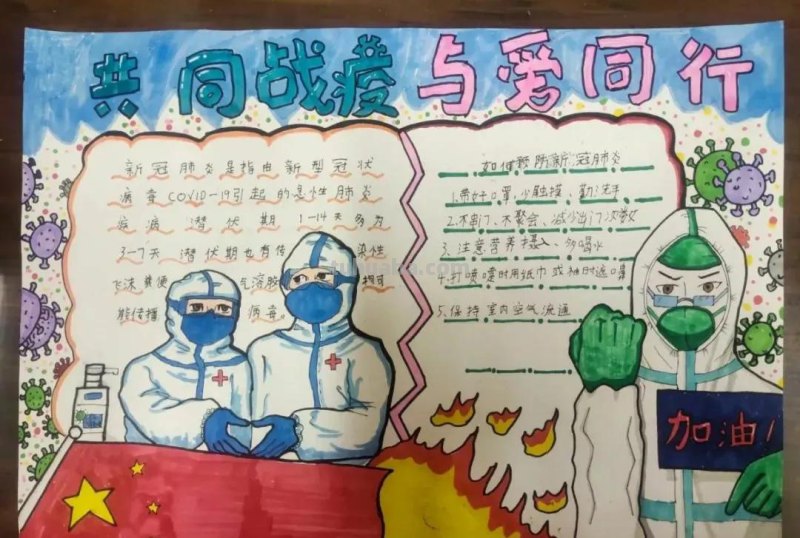 共同战疫与爱同行
新冠肺炎是指由新型冠状
病毒COVID-19引起的急性肺炎
疾病潜伏期1-14天多为
3-7天潜伏期也有传染性
飞沫粪便气溶胶
能传播病毒。
如何预防新冠肺炎
1.带好口罩,少触摸、勤洗手
2.不串门、不聚会、减少出门次数
3.注意营养摄入多喝水
4.打喷嚏时用纸巾或袖时遮嘴
5.保持室内空气流通
加油!